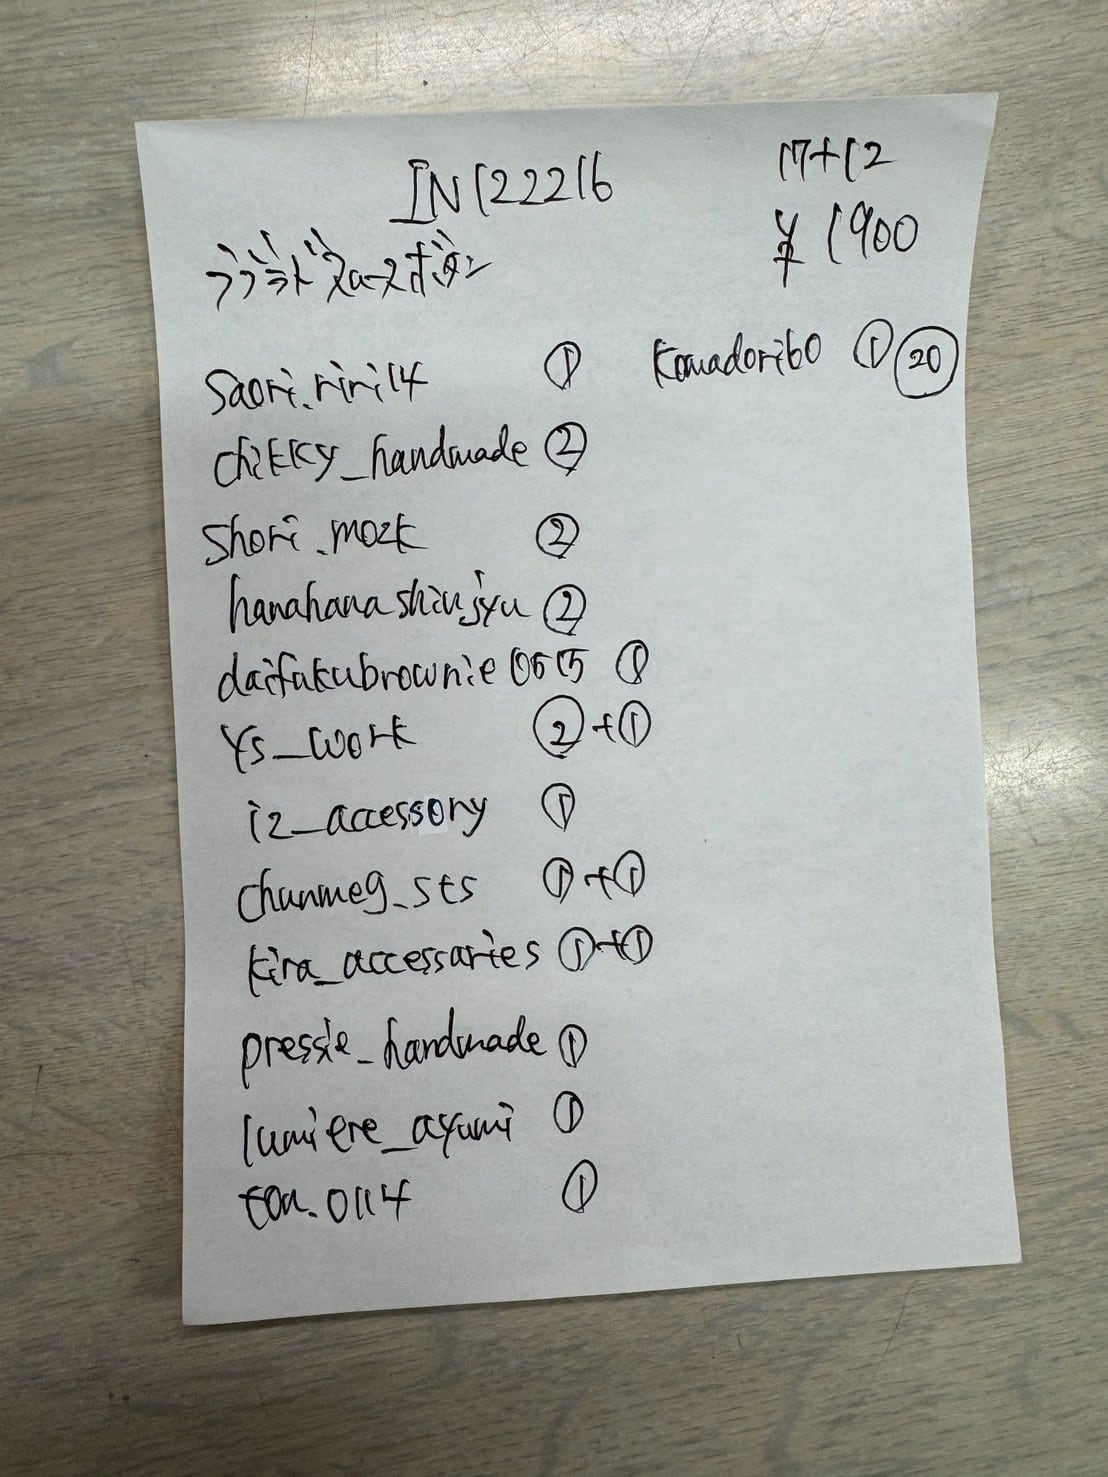 IN122216
17+12
¥1900
saori.riri14 ①
komadori60 ① ⑳
chikky_handmade ②
shori.mozk ②
hanahanashinjyu ②
daifukubrownie0515 ①
ys_work ②+①
iz_accessory ①
chunmeg_sts ①+①
kira_accessaries ①+①
pressie_handmade ①
lumiere_ayumi ①
toa.0114 ①